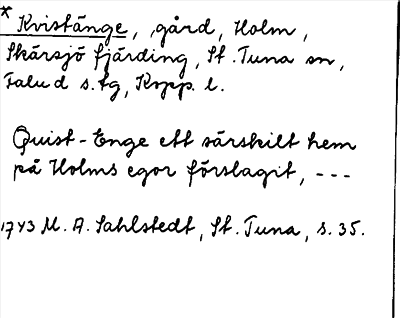 * Kvistänge, gård, Holm,
Skärsjö fjärding, St. Tuna sn,
Falu d. s. tg, Kopp. l.
Quist-Enge ett särskilt hem
på Holms egor förslagit, ---
1743 M. A. Sahlstedt, St. Tuna, s. 35.